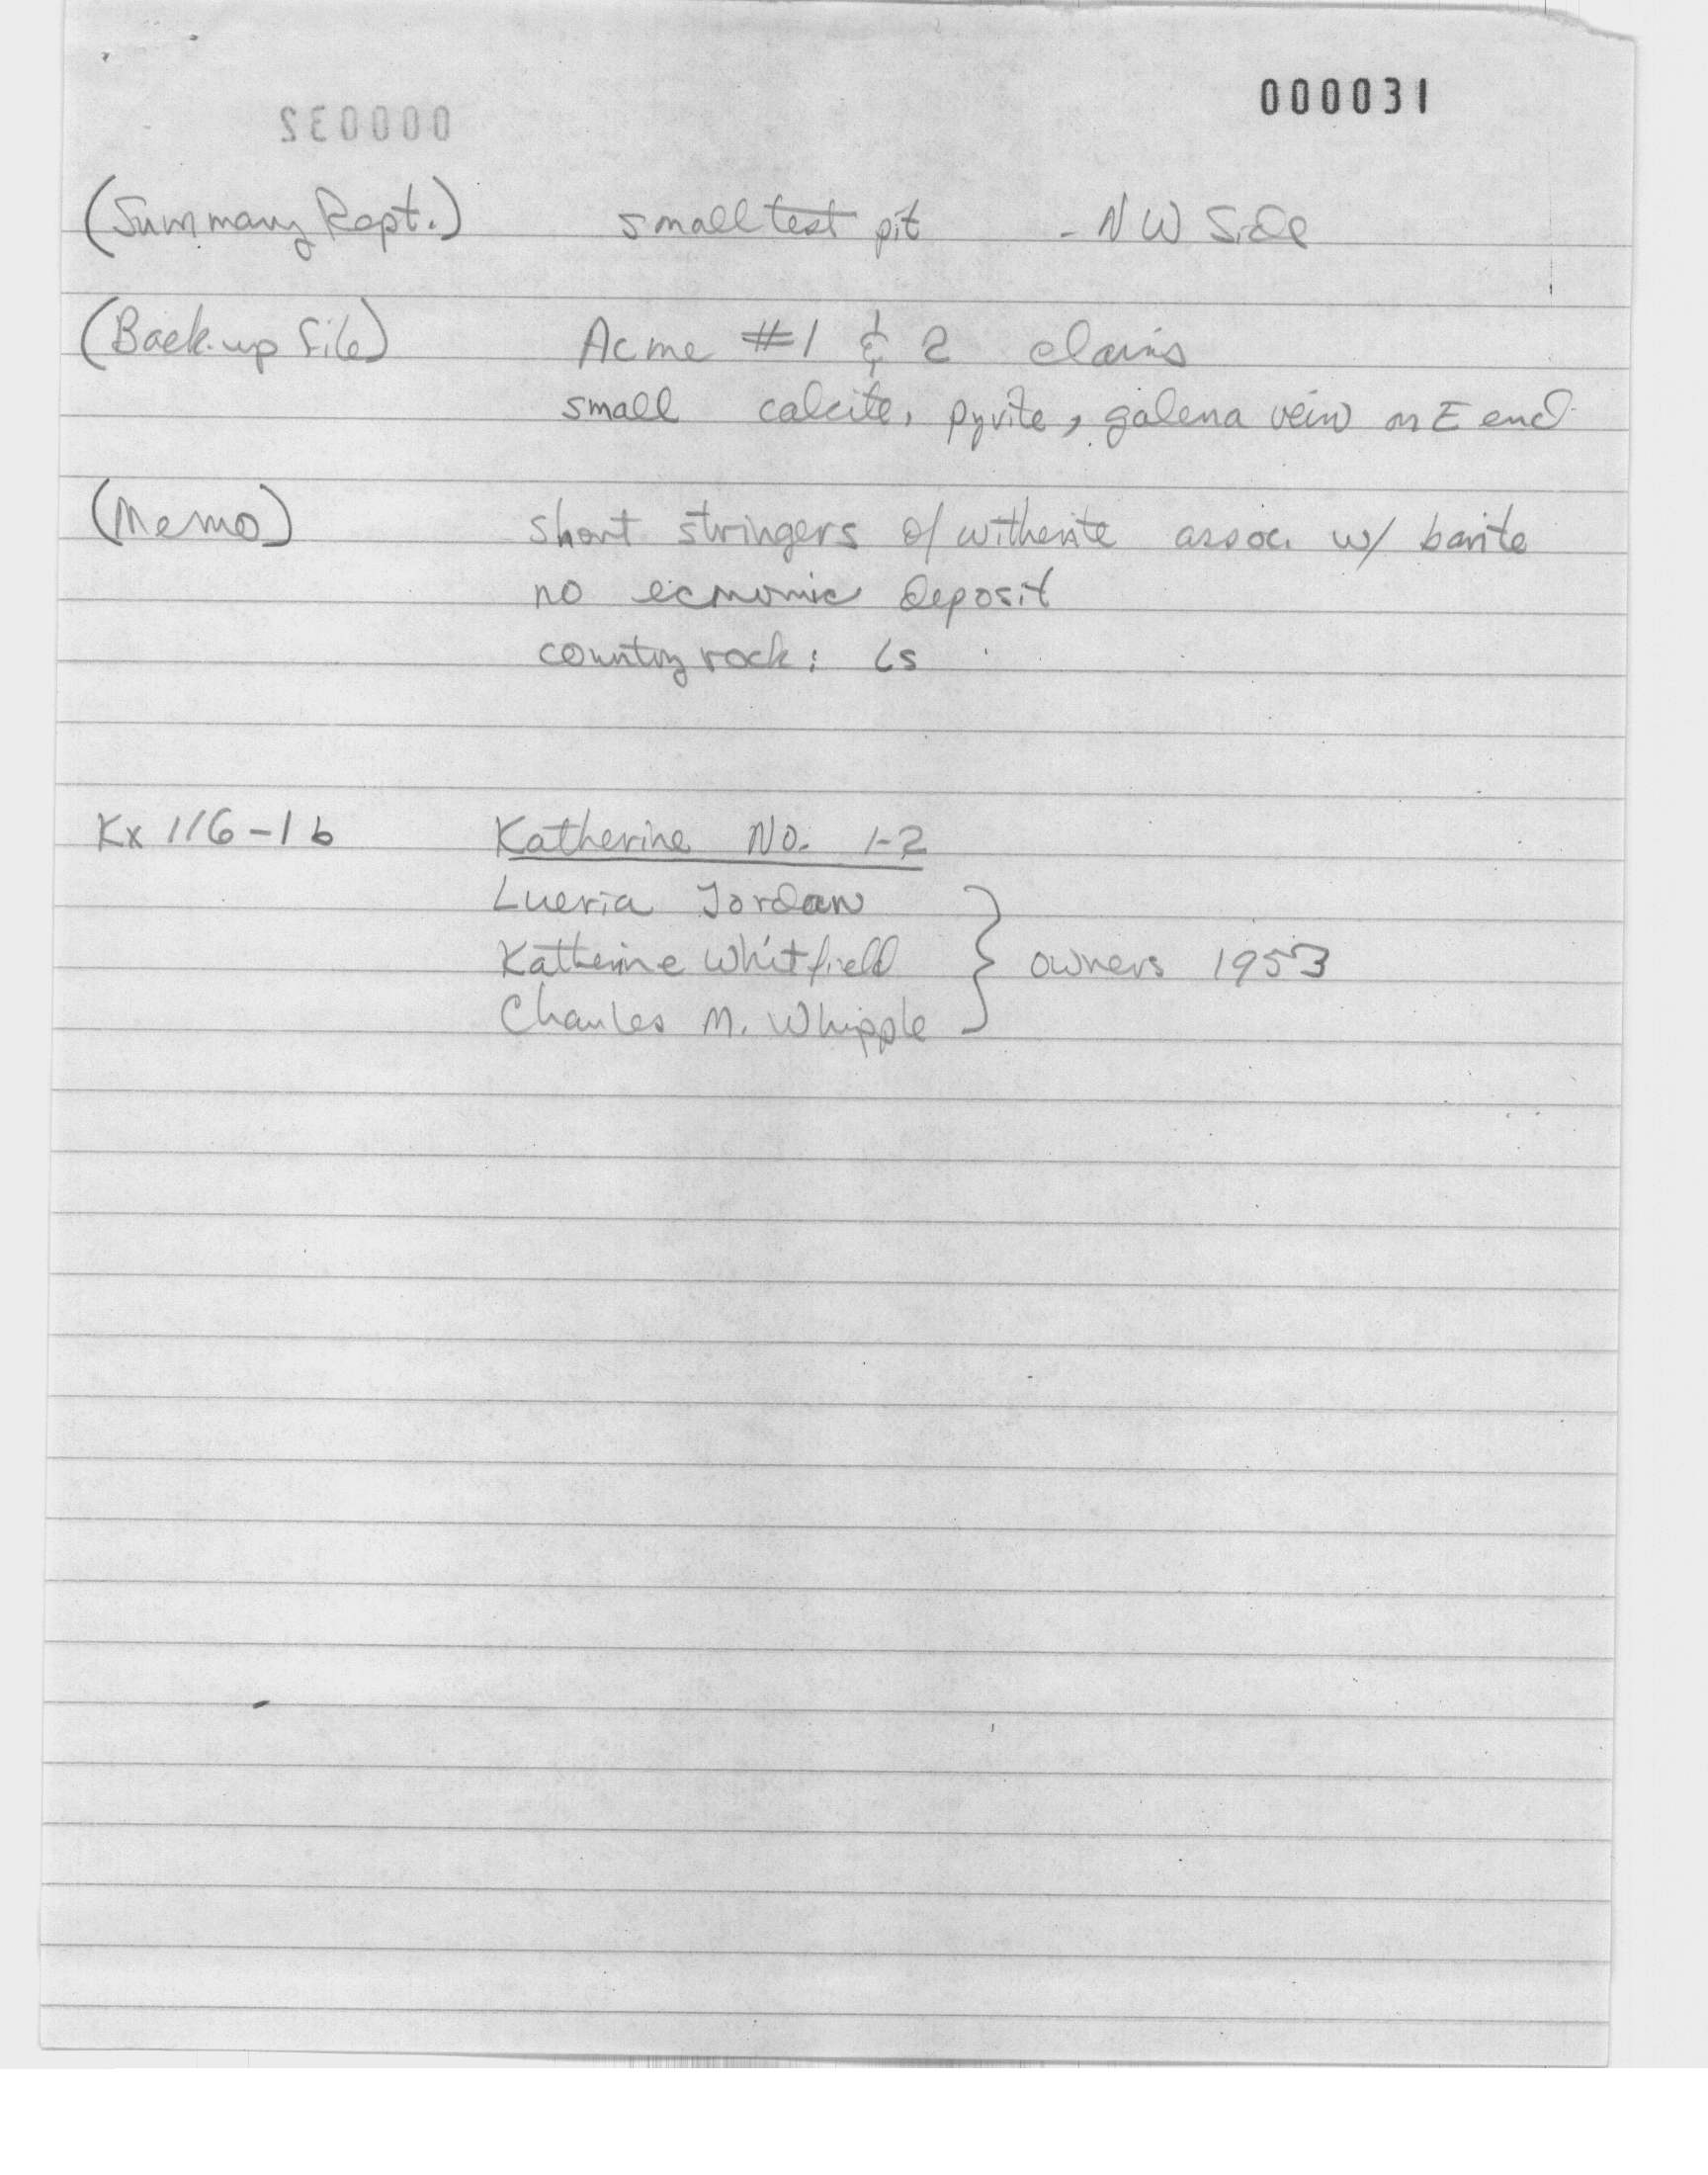 000032
000031
(Summary Rept.) small test pit - NW Side
(Back-up file) Acme #1 & 2 claims
small calcite, pyrite, galena vein on E end
(Memo) short stringers of witherite assoc. w/ barite
no economic deposit
country rock: ls
Kx 116-1b Katherine No. 1-2
Lueria Jordan
Katherine Whitfield } owners 1953
Charles M. Whipple